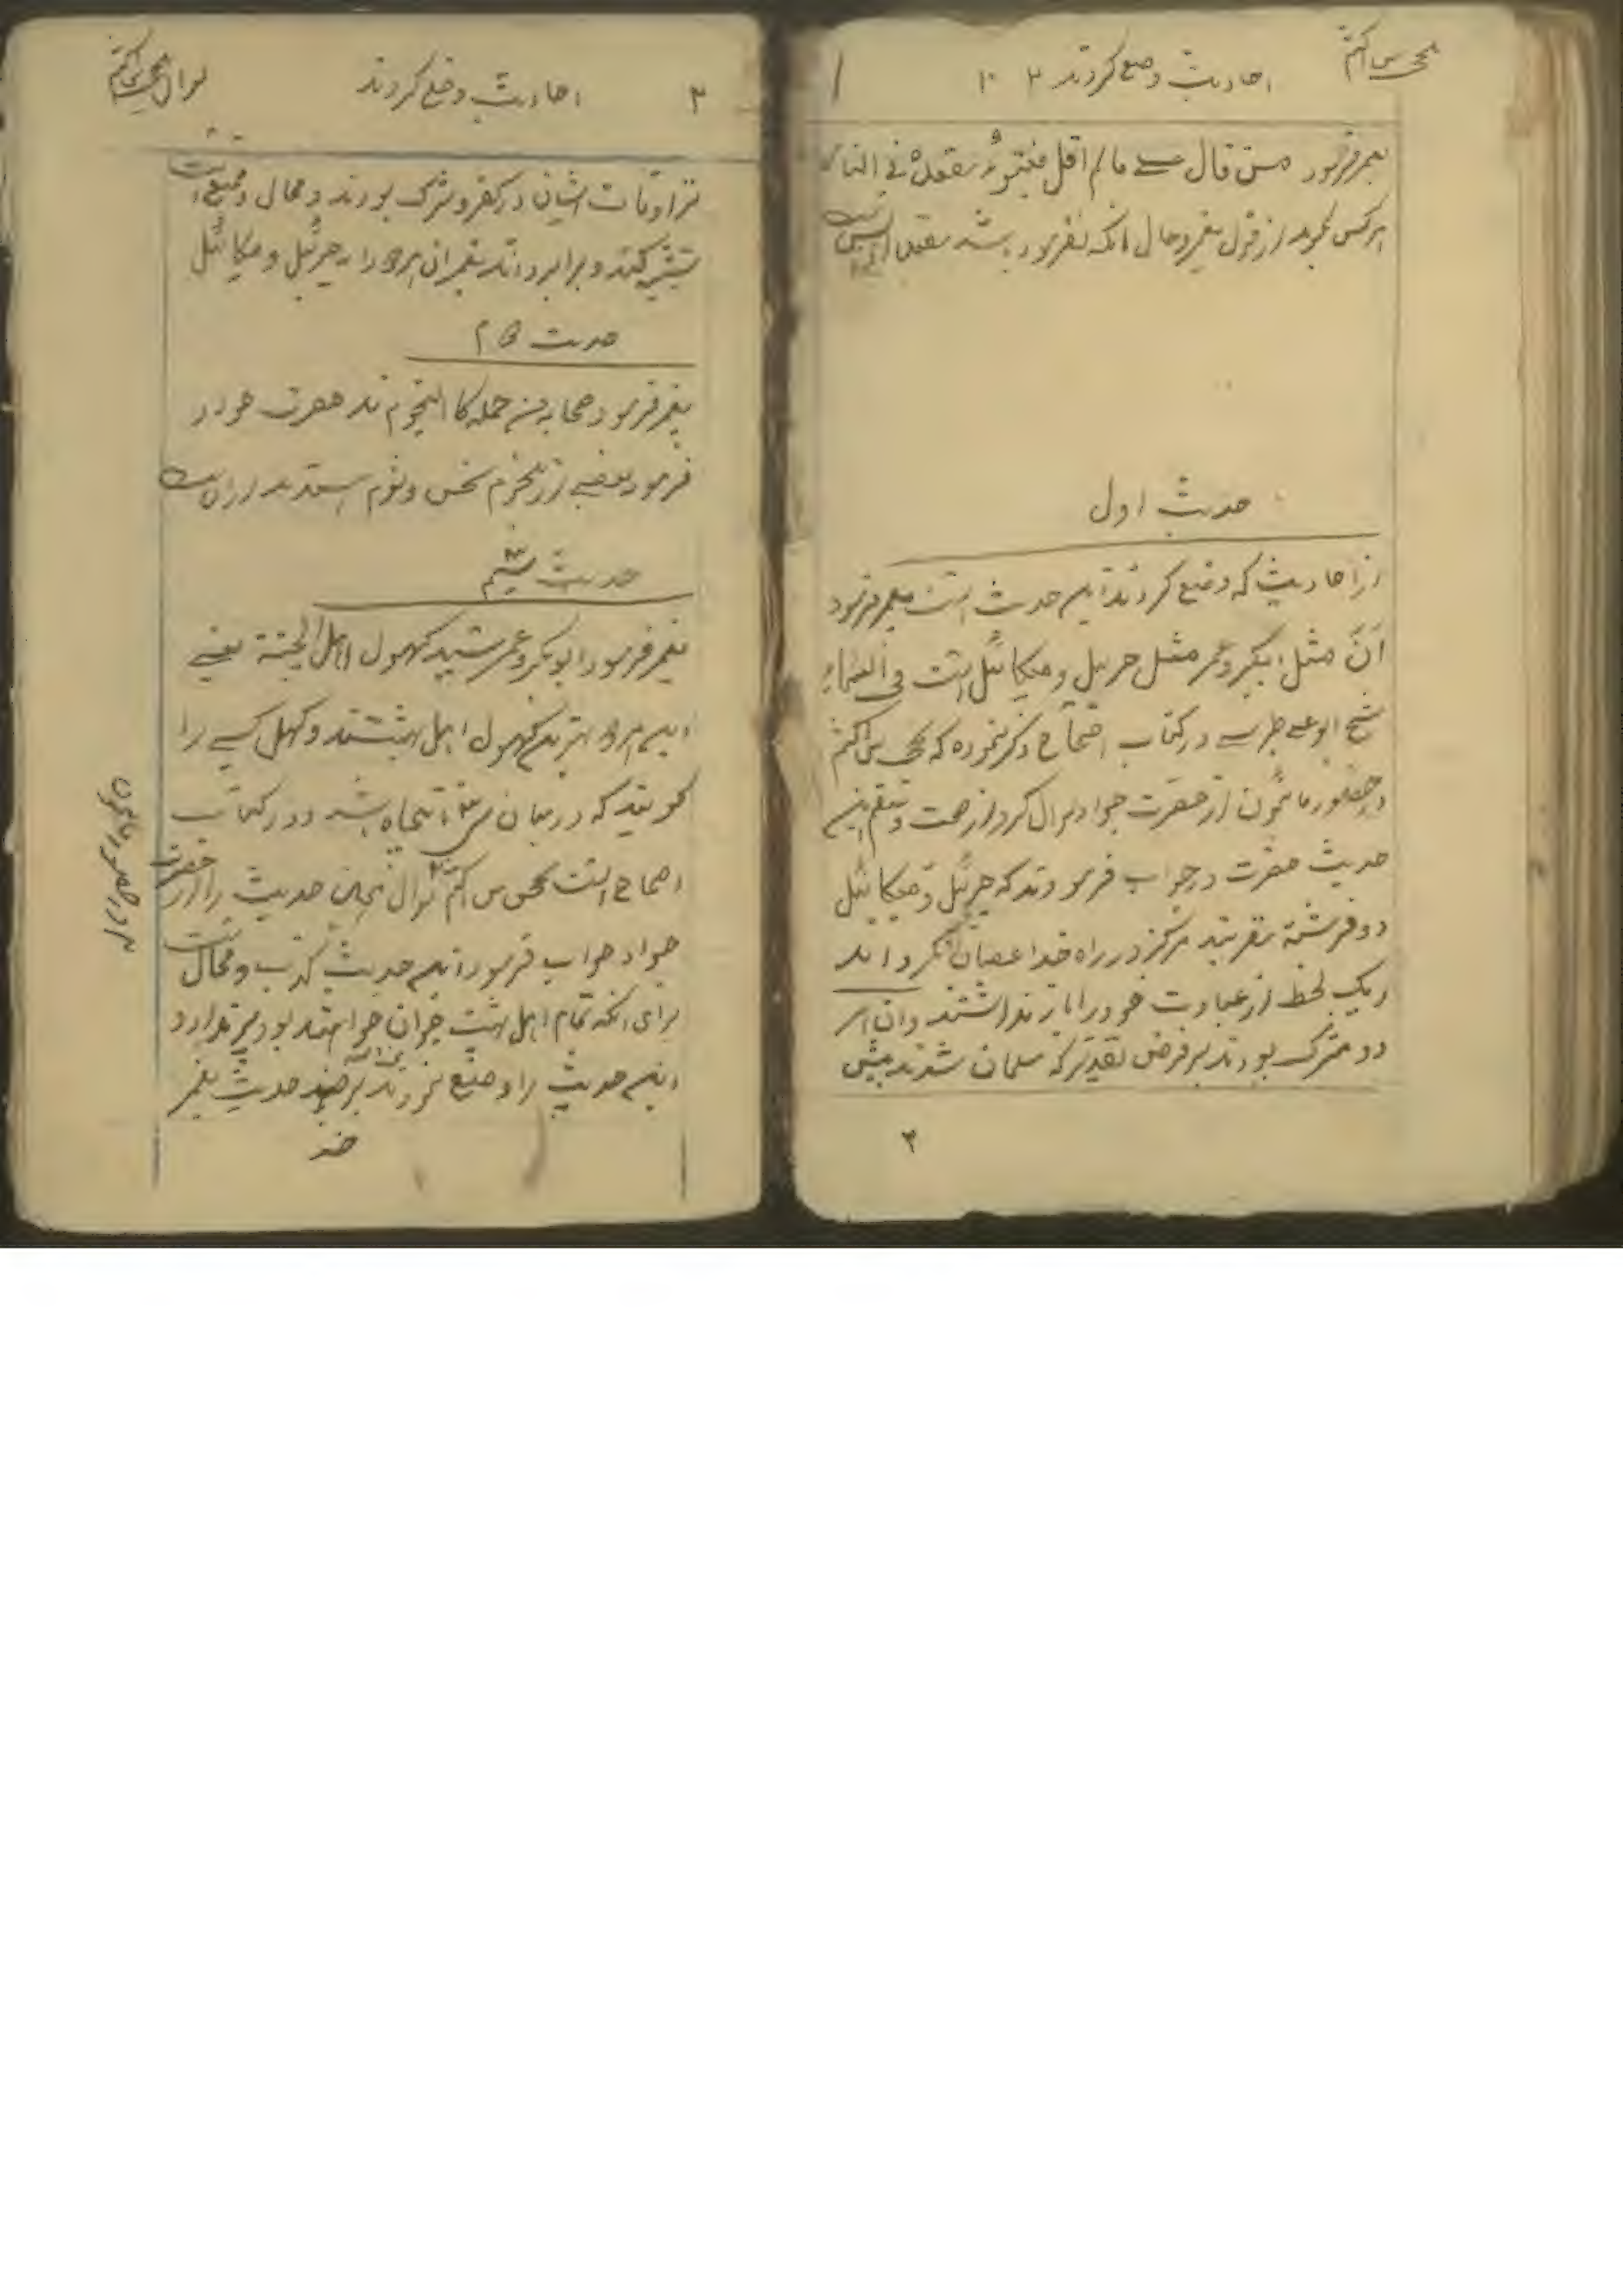 یحیی بن اکثم
احادیث وضع کردند ۲ ۱۰
۱
پیغمبر فرمود من قال علی ما لم اقل فلیتبوّء مقعده فی النار
هر کس بگوید از قول پیغمبر و حال آنکه نفرموده باشد مقعد
حدیث اول
از احادیث که وضع کردند این حدیث است پیغمبر فرمود
انّ مثل ابیبکر و عمر مثل جبرئیل و میکائیل است فی السماء
شیخ ابو علی طبرسی در کتاب احتجاج ذکر نموده که یحیی بن اکثم
در حضور مامون از حضرت جواد سوال کرد از صحت و سقم این
حدیث حضرت در جواب فرمودند که جبرئیل و میکائیل
دو فرشته مقربند هرگز در راه خدا عصیان نکرده اند
و یک لحظ از عبادت خود را باز نداشتند و ان
دو مشرک بودند بر فرض تقدیر که مسلمان شدند بیش
۳
۲
احادیث وضع کردند
سوال یحیی بن اکثم
تر اوقات ایشان در کفر و شرک بودند و محال و ممتنع است
تشبیه کند و برابر داند پیغمبر ان هر دو را به جبرئیل و میکائیل
حدیث دوم
پیغمبر فرمود صحابه من جمله کالنجوم اند حضرت جواد
فرمود بعضی از نجوم نحس و شوم
حدیث سیم
پیغمبر فرمود ابوبکر و عمر سید کهول اهل الجنة یعنی
این هر دو بهترین کهول اهل بهشتند و کهل کسی را
گویند که در میان سی و پنجاه باشد و در کتاب
احتجاج است یحیی بن اکثم سوال نمود این حدیث را از حضرت
جواد جواب فرمود این حدیث کذب و محال است
برای انکه تمام اهل بهشت جوان خواهند بود پیر ندارد و
این حدیث را وضع نمودند بر ضد حدیث پیغمبر
ضد
در حضور مامون